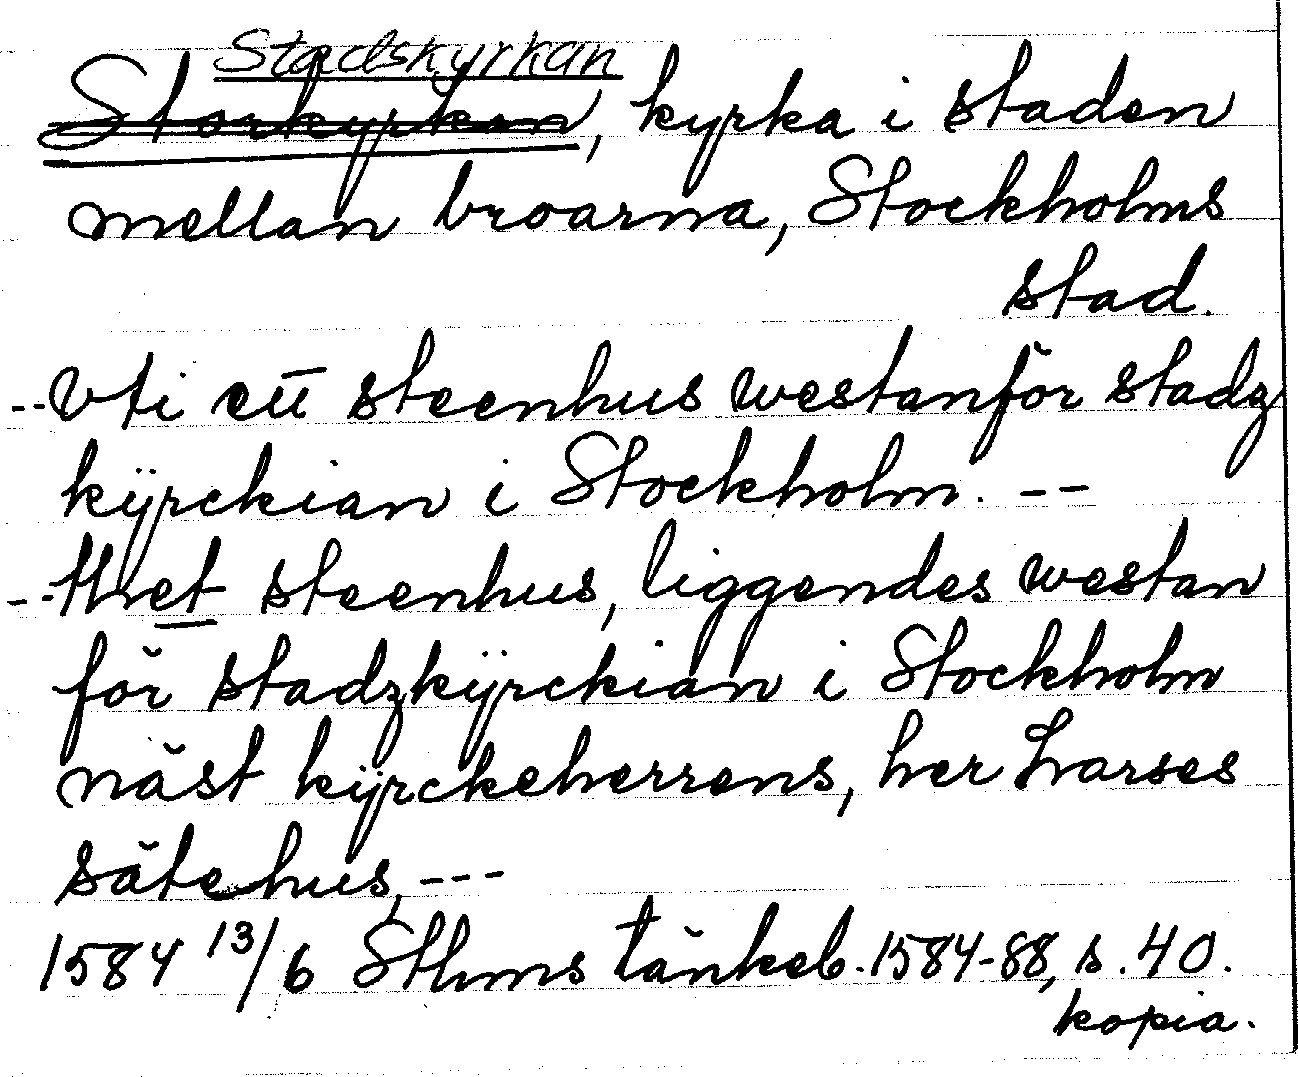 Stadskyrkan
Storkyrkan, kyrka i staden
mellan broarna, Stockholms
stad.
--Vti ett steenhus westanför stadz
kÿrckian i Stockholm. --
--thet steenhus, liggendes westan
för stadzkÿrckian i Stockholm
näst kÿrckeherrens, her Larses
sätehus, ---
1584 13/6 Sthms tänkeb. 1584-88, s. 40.
kopia.